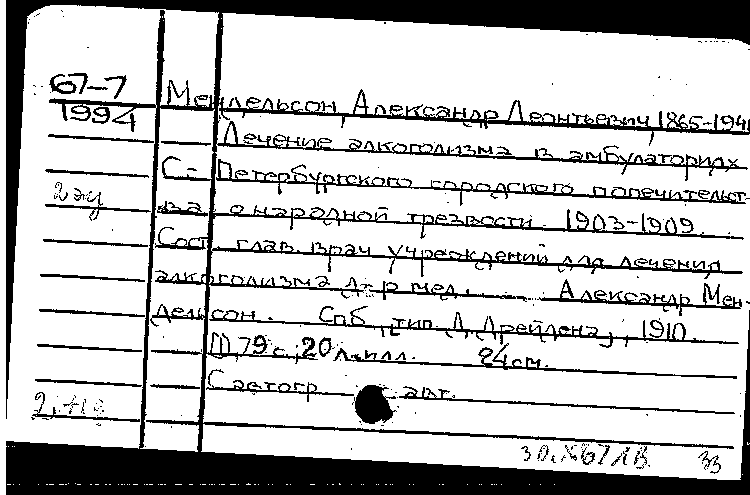 67-7
1994
Мендельсон, Александр Леонтьевич, 1865-194
Лечение алкоголизма в амбулаториях
С.- Петербургского городского попечительст-
2 эк
ва о народной трезвости. 1903-1909.
Сост. глав. врач учреждений для лечения
алкоголизма д-р мед. Александр Мен-
дельсон. Спб., тип. Д. Арейдена, 1910.
79 с., 20 л. илл. 24 см.
С автогр. авт.
30.X 67 ЛВ 33